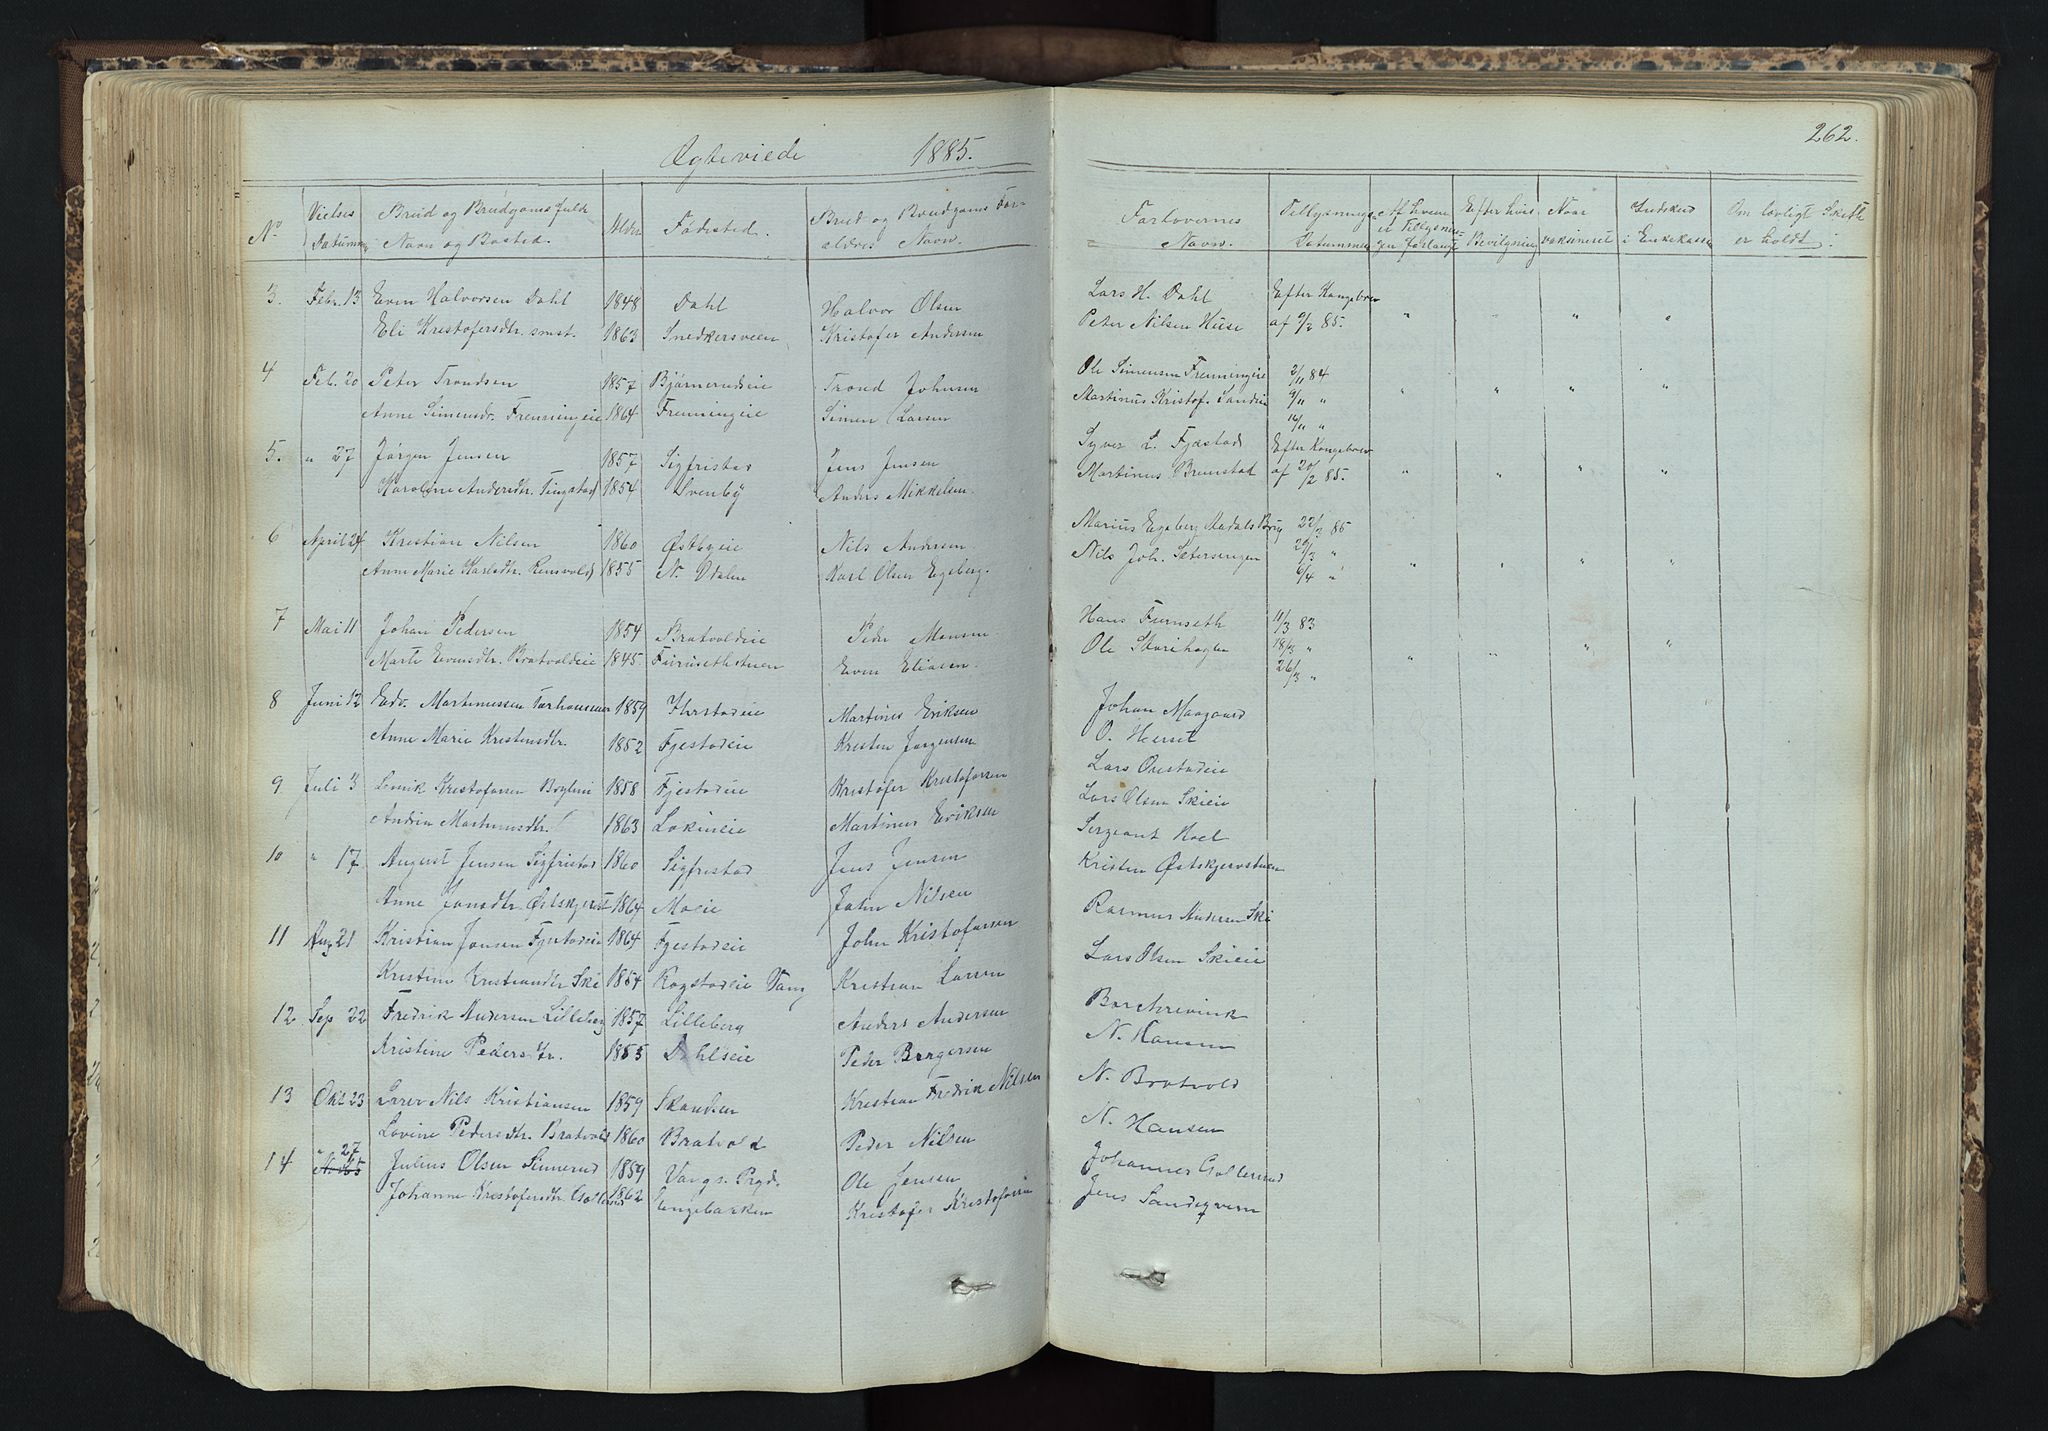 Ægteviede 1885.
262.
No Vielses Datummer Brud og Brudgoms fulde Navn og Bosted. Alder Fødested. Brud og Brudgoms Forældres Navn.
Forlovernes Navn. Tillysnings Datummer Af hvem er Tillysningen forlangt Efter hvis Bevilgning Naar vaksineret Indskud i Enkekassen Om lovligt Skifte er holdt.
3. Febr. 13 Even Halvorsen Dahl 1848 Dahl Halvor Olsen Lars H. Dahl Efter Kongebrev
Eli Kristofersdtr. smst. 1863 Snedkersveen Kristofer Andersen Peter Nilsen Huse af 9/2 85. " " " "
4 Feb. 20 Peter Trondsen 1857 Bjørnerudeie Trond Johnsen Ole Simensen Frenningeie 2/11 84
Anne Simensdr. Frenningeie 1864 Frenningeie Simen Larsen Martinus Kristof. Sandeie 9/11 " " " " "
16/11 "
5. " 27 Jørgen Jensen 1857 Sigfristad Jens Jensen Syver L. Fjæstad Efter Kongebrev
Karoline Andersdtr. Tingstad 1854 Svenby Anders Mikkelsen. Martinus Brenstad af 20/2 85. " " " "
6 April 24 Kristian Nilsen 1860 Østbyeie Nils Andersen Marius Egeberg Aadals Brug 22/3 85
Anne Marie Karlsdtr. Rensvold 1855 N. Odalen Karl Olsen Egeberg. Nils Joh. Sætersengen 29/3 "
6/4 " " " " "
7 Mai 11 Johan Pedersen 1854 Bratvoldeie Peder Monsen Hans Furuseth 11/3 83
Marte Evensdtr. Bratvoldeie 1845. Furusethstuen Even Eliasen. Ole Storihagen 18/3 " " " " "
26/3 "
8 Juni 12 Edv. Martinussen 1859 Martines Eriksen Johan Maagaard
Anne Marie Kristensdtr. 1852 Fjestadeie Kristen Jørgensen O. Herset
9 Juli 3 Kristofersen 1858 Fjestadeie Kristofer Kristofersen Lars Onstadeie
Andrea Martinusdtr. 1863 Martinus Eriksen Lars Olsen Skieie
10 " 17 August Jensen Sigfristad 1860 Sigfristad Jens Jensen Sergeant Hoel
Anne Jonsdtr. 1864 Moeie John Nilsen Kristen Østskjerstuen
11 Aug 21 Kristian Jonsen Fjestadeie 1864 Fjestadeie John Kristofersen Rasmus Andersen Ski
Kristine Kristiansdtr Ski 1854 Rogstadeie Vang Kristian Larsen Lars Olsen Skieie
12 Sep 22 Fredrik Andersen Lilleberg 1857 Lilleberg Anders Andersen
Kristine Pedersdtr. 1855 Dahlseie Peder Bergersen N. Hansen
13 Okt. 23 Lærer Nils Kristiansen 1859 Skanden Kristian Fredrik Nilsen N. Bratvold
Lovine Pedersdtr. Bratvold 1860 Bratvold Peder Nilsen N. Hansen
14 " 27 Julius Olsen Sinnerud 1859 Vangs. Prgd. Ole Jensen Johannes Gollerud
Johanne Kristofersdtr Gollerud 1862 Engebakken Kristofer Kristofersen Jens Sandegveen